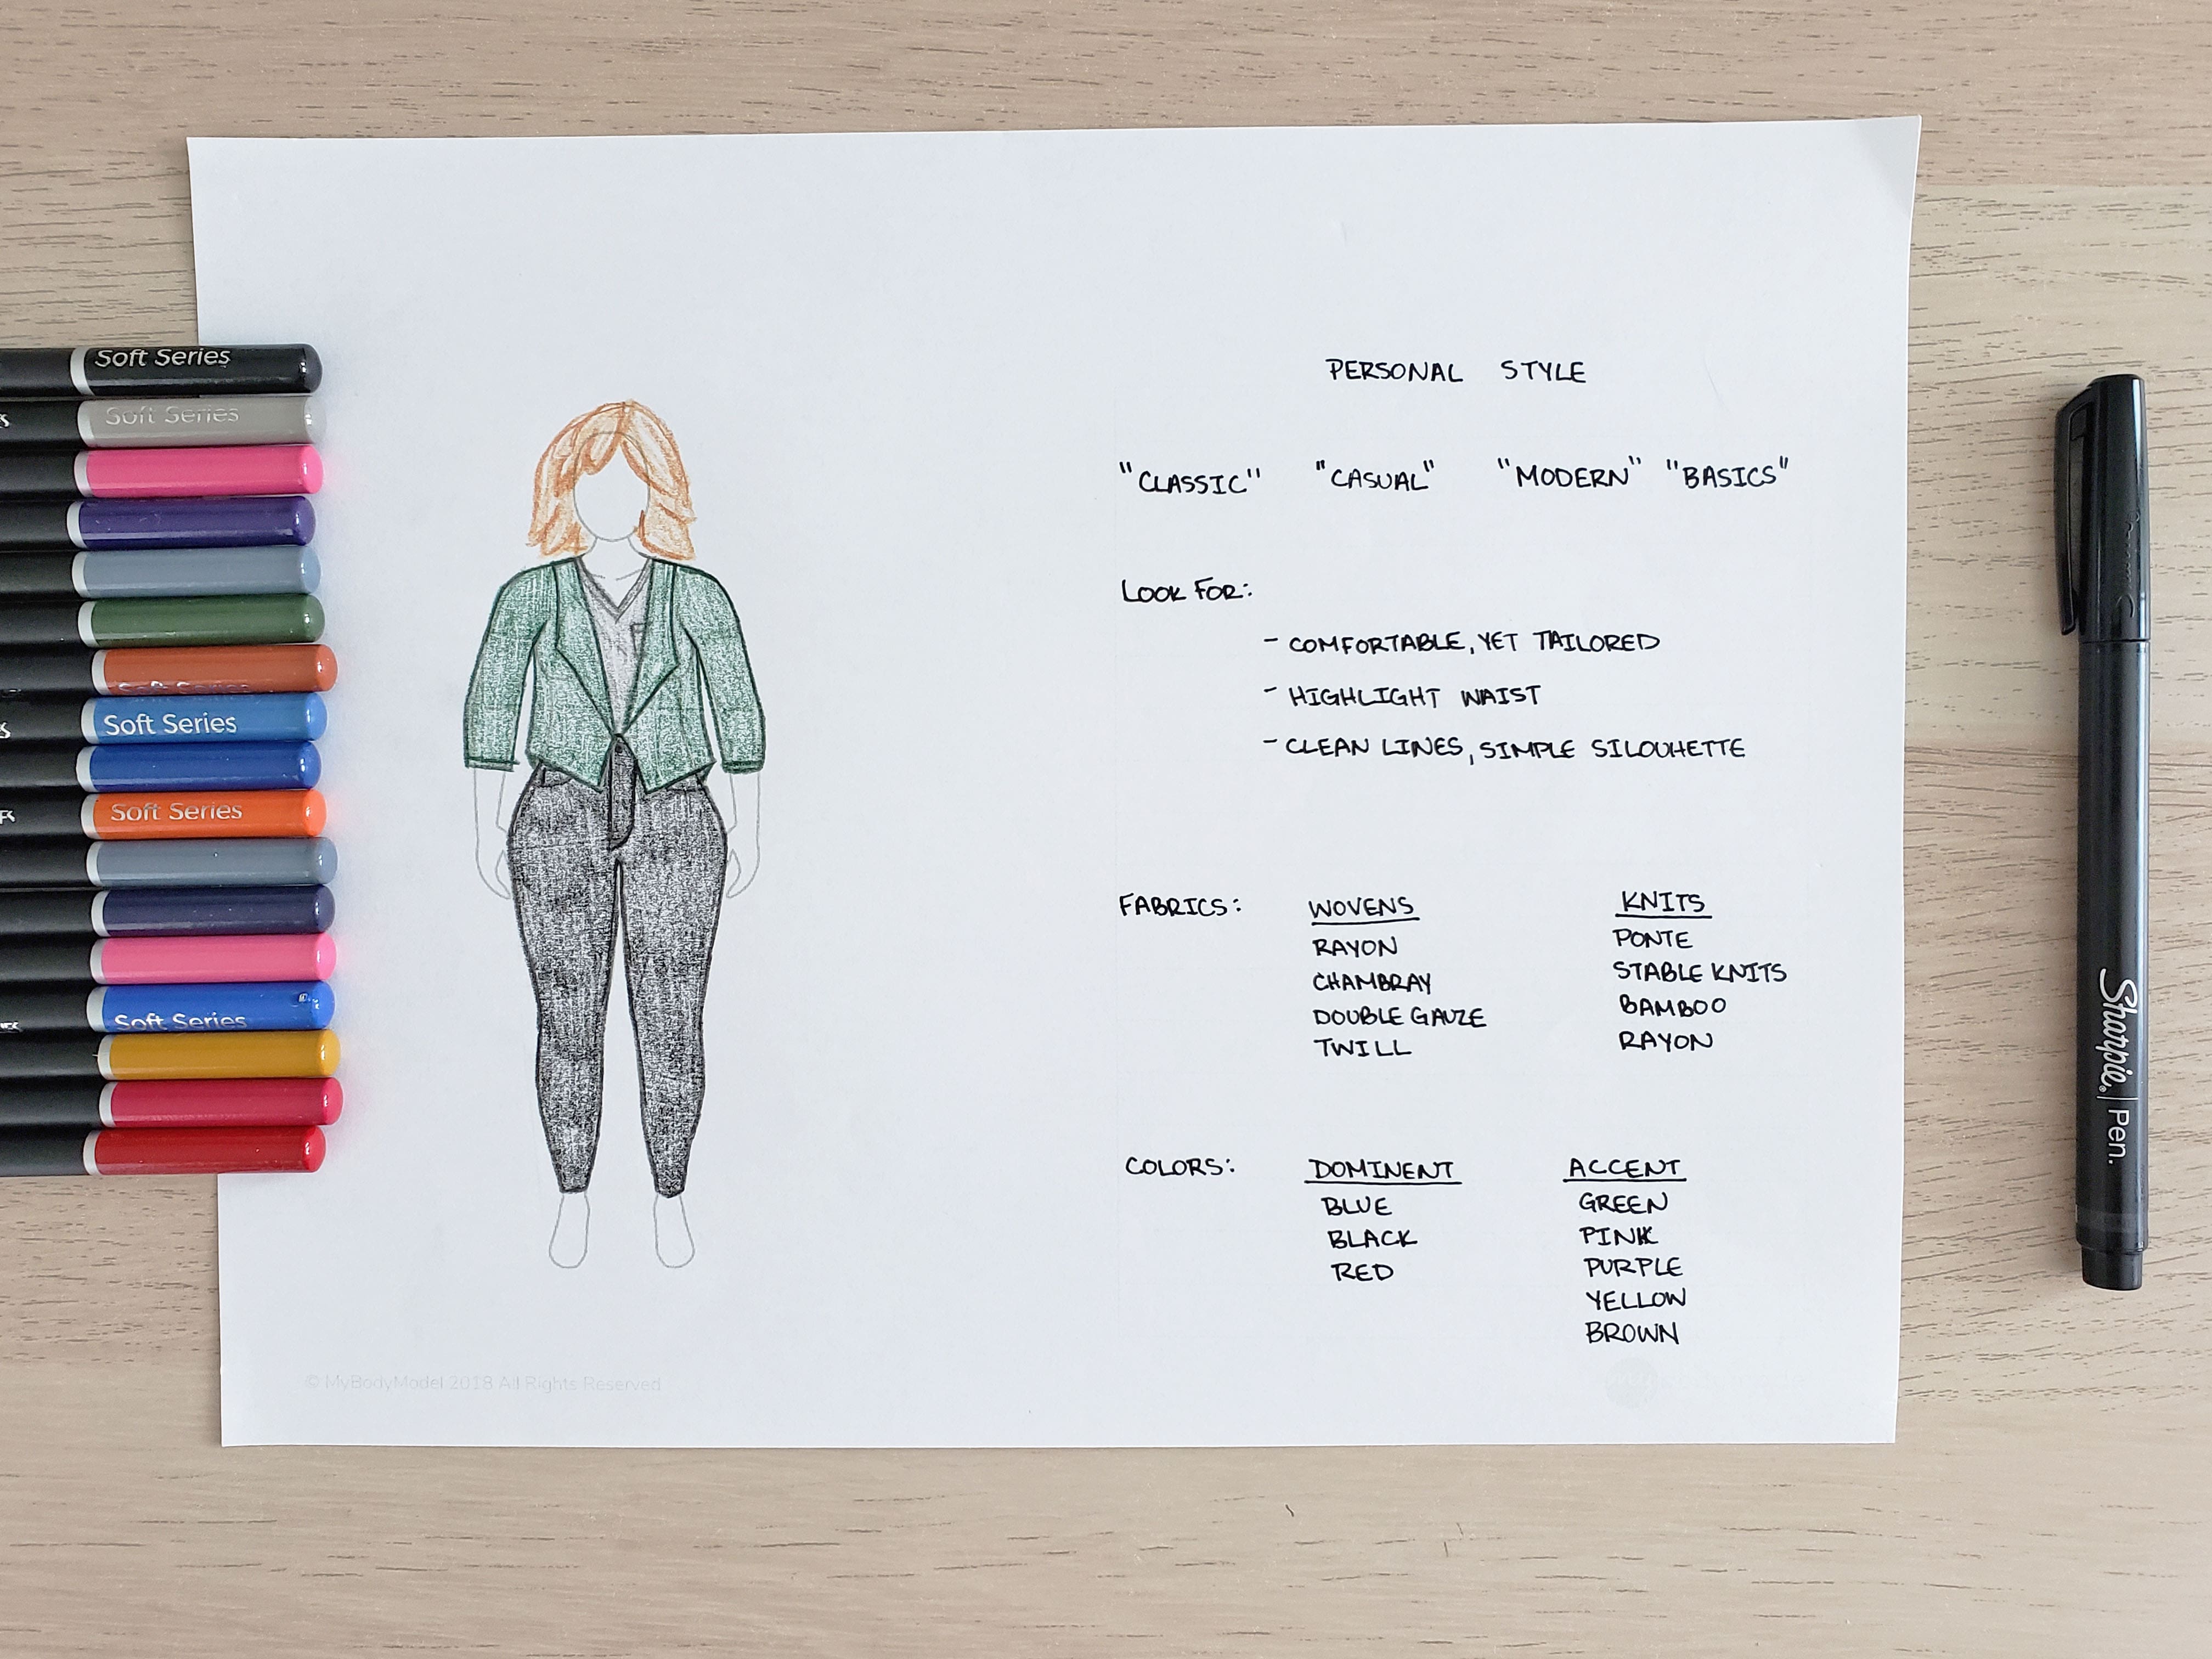 Soft Series
Soft Series
Soft Series
Soft Series
Soft Series
Soft Series
PERSONAL STYLE
"CLASSIC" "CASUAL" "MODERN" "BASICS"
LOOK FOR:
- COMFORTABLE, YET TAILORED
- HIGHLIGHT WAIST
- CLEAN LINES, SIMPLE SILOUHETTE
FABRICS: WOVENS KNITS
RAYON PONTE
CHAMBRAY STABLE KNITS
DOUBLE GAUZE BAMBOO
TWILL RAYON
COLORS: DOMINENT ACCENT
BLUE GREEN
BLACK PINK
RED PURPLE
YELLOW
BROWN
© MyBodyModel 2018 All Rights Reserved
Sharpie. Pen.